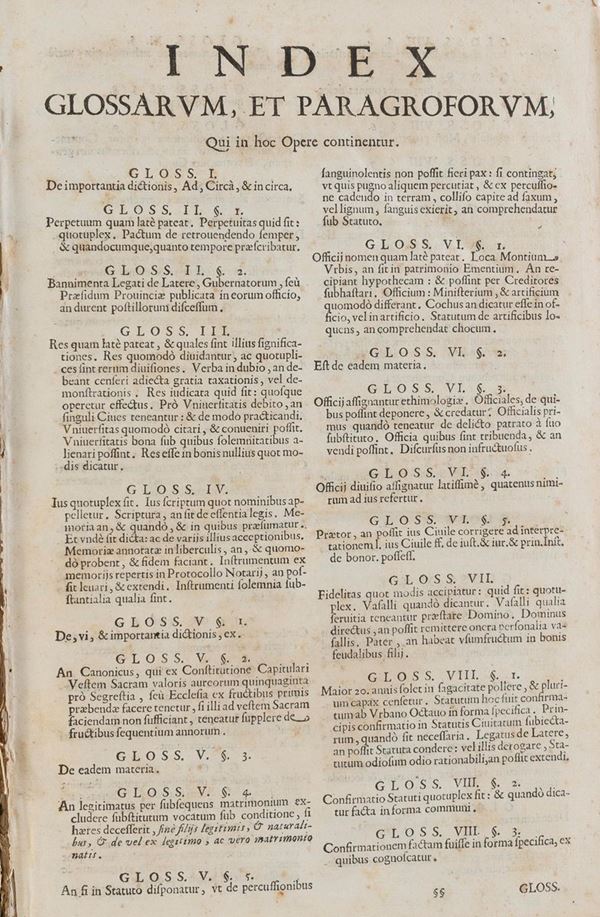 INDEX
GLOSSARVM, ET PARAGROFORVM,
Qui in hoc Opere continentur.
GLOSS. I.
De importantia dictionis, Ad, Circà, & in circa.
GLOSS. II. §. 1.
Perpetuum quam latè pateat. Perpetuitas quid sit:
quotuplex. Pactum de retrouendendo semper,
& quandocumque, quanto tempore præscribatur.
GLOSS. II. §. 2.
Bannimenta Legati de Latere, Gubernatorum, seù
Præsidum Prouinciæ publicata in eorum officio,
an durent post illorum discessum.
GLOSS. III.
Res quam latè pateat, & quales sint illius significa-
tiones. Res quomodò diuidantur, ac quotupli-
ces sint rerum diuisiones. Verba in dubio, an de-
beant censeri adiecta gratia taxationis, vel de-
monstrationis. Res iudicata quid sit: quosque
operetur effectus. Prò Vniuersitatis debito, an
singuli Ciues teneantur: & de modo practicandi.
Vniuersitas quomodò citari, & conueniri possit.
Vniuersitatis bona sub quibus solemnitatibus a-
lienari possint. Res esse in bonis nullius quot mo-
dis dicatur.
GLOSS. IV.
Ius quotuplex sit. Ius scriptum quot nominibus ap-
pelletur. Scriptura, an sit de essentia legis. Me-
moria an, & quandò, & in quibus præsumatur.
Et vndè sit dicta: ac de varijs illius acceptionibus.
Memoriæ annotatæ in liberculis, an, & quomo-
dò probent, & fidem faciant. Instrumentum ex
memorijs repertis in Protocollo Notarij, an pos-
sit leuari, & extendi. Instrumenti solemnia sub-
stantialia qualia sint.
GLOSS. V §. 1.
De, vi, & importantia dictionis, ex.
GLOSS. V. §. 2.
An Canonicus, qui ex Constitutione Capitulari
Vestem Sacram valoris aureorum quinquaginta
prò Segrestia, seù Ecclesia ex fructibus primis
præbendæ facere tenetur, si illi ad vestem Sacram
faciendam non sufficiant, teneatur supplere de
fructibus sequentium annorum.
GLOSS. V. §. 3.
De eadem materia.
GLOSS. V. §. 4.
An legitimatus per subsequens matrimonium ex-
cludere substitutum vocatum sub conditione, si
hæres decesserit, sine filijs legitimis, & naturali-
bus, & de vel ex legitimo, ac vero matrimonio
natis.
GLOSS. V. §. 5.
An si in Statuto disponatur, vt de percussionibus
sanguinolentis non possit fieri pax: si contingat,
vt quis pugno aliquem percutiat, & ex percussio-
ne cadendo in terram, colliso capite ad saxum,
vel lignum, sanguis exierit, an comprehendatur
sub Statuto.
GLOSS. VI. §. 1.
Officij nomen quam latè pateat. Loca Montium
Vrbis, an sit in patrimonio Ementium. An re-
cipiant hypothecam: & possint per Creditores
subhastari. Officium: Ministerium, & artificium
quomodò differant. Cochus an dicatur esse in of-
ficio, vel in artificio. Statutum de artificibus lo-
quens, an comprehendat chocum.
GLOSS. VI. §. 2.
Est de eadem materia.
GLOSS. VI. §. 3.
Officij assignantur ethimologiæ. Officiales, de qui-
bus possint deponere, & credatur. Officialis pri-
mus quandò teneatur de delicto patrato à suo
substituto. Officia quibus sint tribuenda, & an
vendi possint. Discursus non infructuosus.
GLOSS. VI. §. 4.
Officij diuisio assignatur latissimè, quatenus nimi-
rum ad ius refertur.
GLOSS. VI. §. 5.
Prætor, an possit ius Ciuile corrigere ad interpre-
tationem l. ius Ciuile ff. de iust. & iur. & prin. Inst.
de bonor. possess.
GLOSS. VII.
Fidelitas quot modis accipiatur: quid sit: quotu-
plex. Vasalli quandò dicantur. Vasalli qualia
seruitia teneantur præstare Domino. Dominus
directus, an possit remittere onera personalia va-
sallis. Pater, an habeat vsumfructum in bonis
feudalibus filij.
GLOSS. VIII. §. 1.
Maior 20. annis solet in sagacitate pollere, & pluri-
um capax censetur. Statutum hoc fuit confirma-
tum ab Vrbano Octauo in forma specifica. Prin-
cipis confirmatio in Statutis Ciuitatum subiecta-
rum, quandò sit necessaria. Legatus de Latere,
an possit Statuta condere: vel illis derogare, Sta-
tutum odiosum odio rationabili, an possit extendi.
GLOSS. VIII. §. 2.
Confirmatio Statuti quotuplex sit: & quandò dica-
tur facta in forma communi.
GLOSS. VIII. §. 3.
Confirmationem factam fuisse in forma specifica, ex
quibus cognoscatur.
§§ GLOSS.